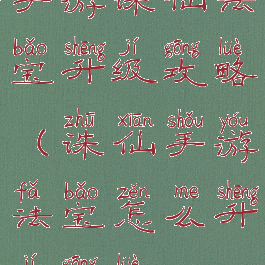 手游诛仙法
bǎo shēng jí gōng lüè
宝升级攻略
zhū xiān shǒu yóu
(诛仙手游
fǎ bǎo zěn me shēng
法宝怎么升
jí gōng lüè